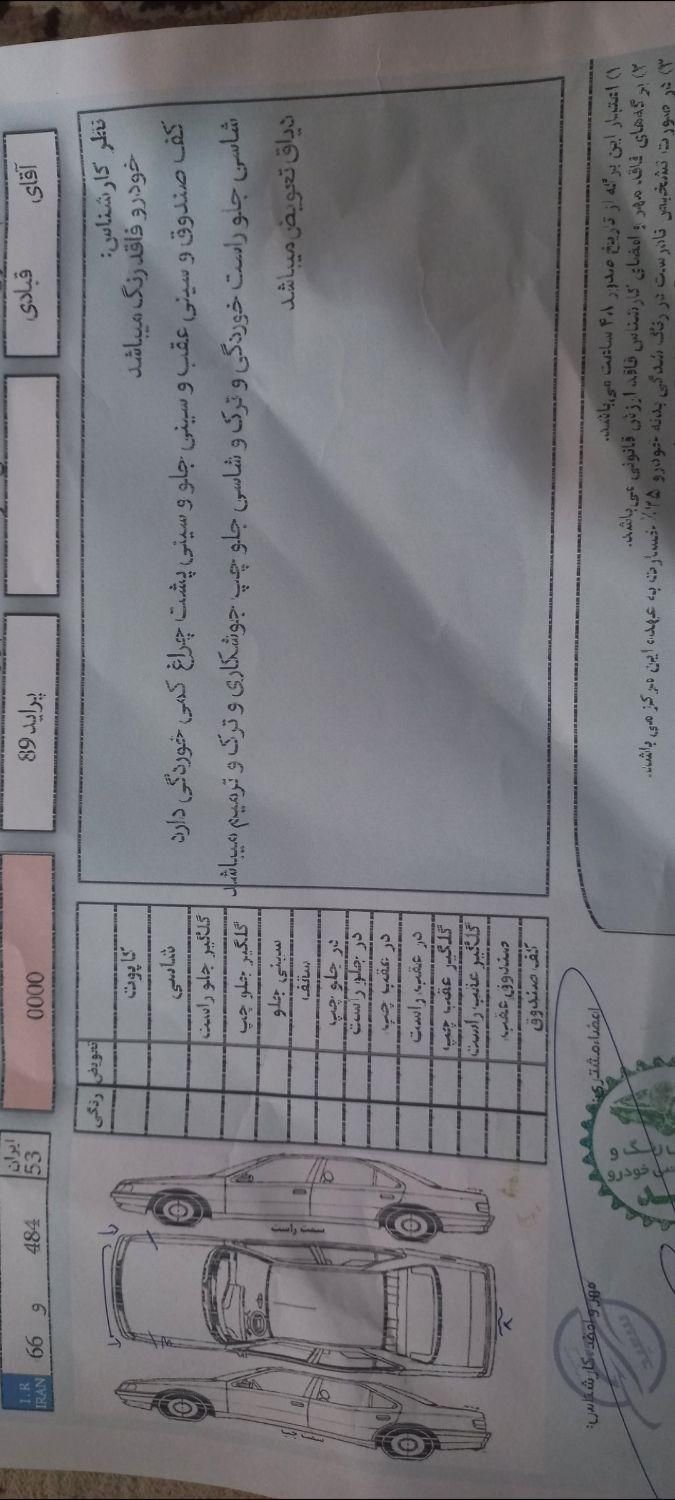 آقای قبادی
پراید 89
0000
ایران
53
66 و 484
I.R
IRAN
نظر کارشناس:
خودرو فاقد رنگ میباشد
کف صندوق و سینی عقب و سینی جلو و سینی پشت چراغ کمی خوردگی دارد
شاسی جلو راست خوردگی و ترک و شاسی جلو چپ جوشکاری و ترک و ترمیم میباشد
دیاق تعویض میباشد
تعویض رنگی
کاپوت
شاسی
گلگیر جلو راست
گلگیر جلو چپ
سینی جلو
سقف
در جلو چپ
در جلو راست
در عقب چپ
در عقب راست
گلگیر عقب چپ
گلگیر عقب راست
صندوق عقب
کف صندوق
سمت راست
۱) اعتبار این برگه از تاریخ صدور ۴۸ ساعت می باشد.
۲) برگه‌های فاقد مهر و امضای کارشناس فاقد ارزش قانونی می باشد.
۳) در صورت تشخیص نادرست در رنگ شدگی بدنه خودرو ۲۵٪ خسارت به عهده این مرکز می باشد.
امضاء مشتری:
مهر و امضاء کارشناس:
خودرو